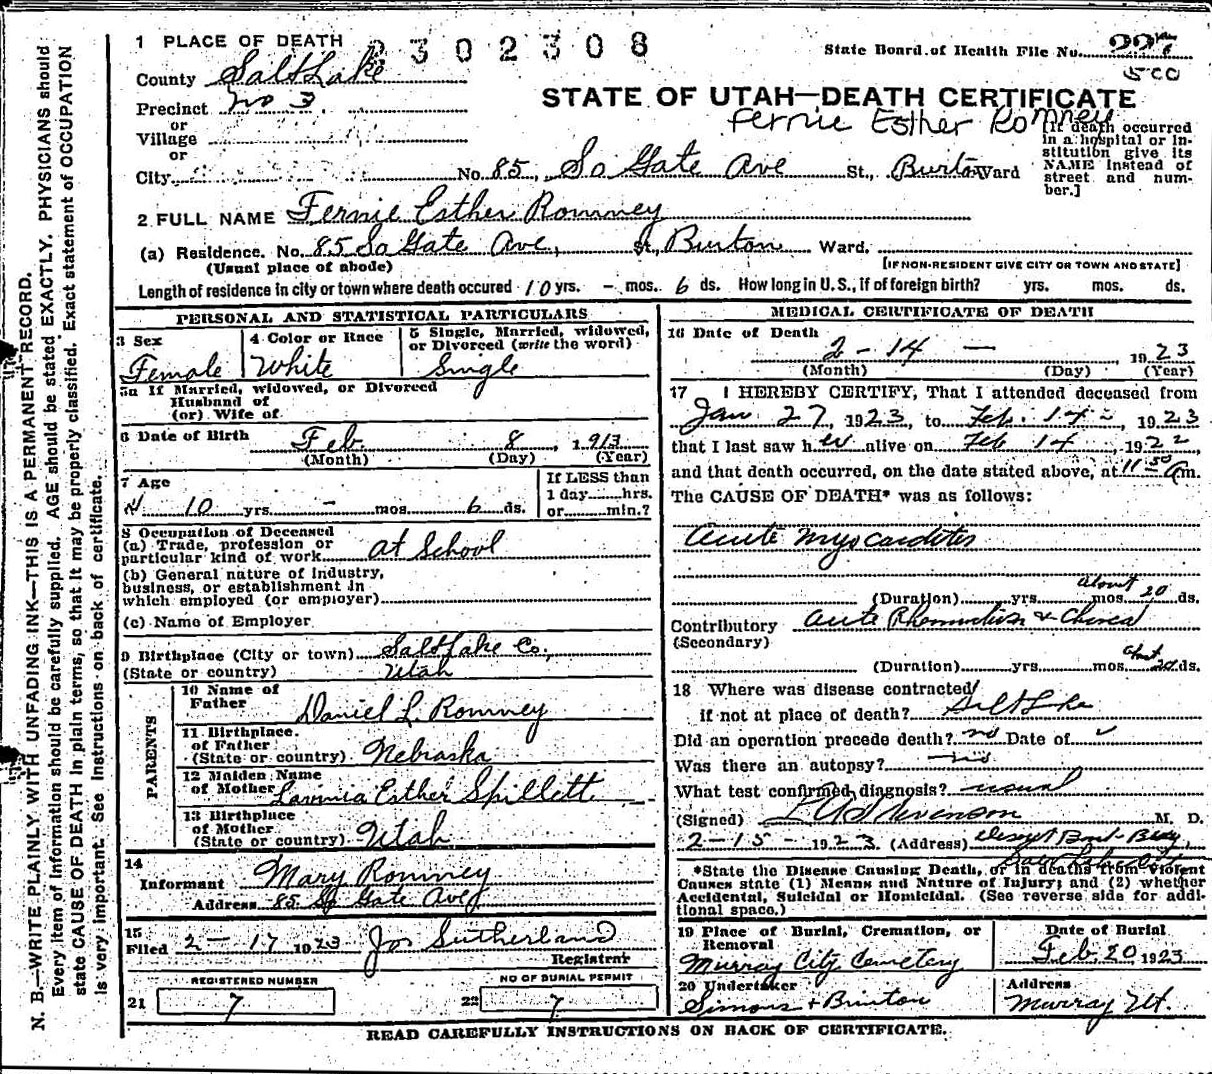 1 PLACE OF DEATH 2302308
State Board of Health File No. 22
500
County Salt Lake
STATE OF UTAH—DEATH CERTIFICATE
Precinct No 3
Fernie Esther Romney
or
Village
or
City No. 85, So Gate Ave St., Burton Ward
[If death occurred
in a hospital or in-
stitution give its
NAME instead of
street and num-
ber.]
2 FULL NAME Fernie Esther Romney
(a) Residence. No. 85 So Gate Ave, St., Burton Ward.
(Usual place of abode)
[IF NON-RESIDENT GIVE CITY OR TOWN AND STATE]
Length of residence in city or town where death occured 10 yrs. - mos. 6 ds. How long in U.S., if of foreign birth? yrs. mos. ds.
PERSONAL AND STATISTICAL PARTICULARS
3 Sex
Female
4 Color or Race
White
5 Single, Married, widowed,
or Divorced (write the word)
Single
5a If Married, widowed, or Divorced
Husband of
(or) Wife of
6 Date of Birth Feb. 8, 1913
(Month) (Day) (Year)
7 Age
10 yrs. - mos. 6 ds.
If LESS than
1 day hrs.
or min.?
8 Occupation of Deceased
(a) Trade, profession or
particular kind of work at School
(b) General nature of industry,
business, or establishment in
which employed (or employer)
(c) Name of Employer
9 Birthplace (City or town) Salt Lake Co.,
(State or country) Utah
PARENTS
10 Name of
Father Daniel L. Romney
11 Birthplace
of Father
(State or country) Nebraska
12 Maiden Name
of Mother Lavinia Esther Spillett
13 Birthplace
of Mother
(State or country) Utah
14
Informant Mary Romney
Address 85 So Gate Ave
15
Filed 2-17 1923 Jos Sutherland
Registrar
REGISTERED NUMBER
21 7
NO OF BURIAL PERMIT
22 7
MEDICAL CERTIFICATE OF DEATH
16 Date of Death
2 - 14 - , 1923
(Month) (Day) (Year)
17 I HEREBY CERTIFY, That I attended deceased from
Jan. 27, 1923, to Feb. 14 -, 1923
that I last saw her alive on Feb 14, 1922
and that death occurred, on the date stated above, at 11 50 a m.
The CAUSE OF DEATH* was as follows:
acute myocarditis
(Duration) yrs. mos. about 20 ds.
Contributory acute Rheumatism & Chorea
(Secondary)
(Duration) yrs. mos. about 20 ds.
18 Where was disease contracted
if not at place of death? Salt Lake
Did an operation precede death? no Date of
Was there an autopsy? no
What test confirmed diagnosis? usual
(Signed) Stevenson M. D.
2-15-1923 (Address) Deseret Bank Bldg,
Salt Lake City
*State the Disease Causing Death, or in deaths from Violent
Causes state (1) Means and Nature of Injury; and (2) whether
Accidental, Suicidal or Homicidal. (See reverse side for addi-
tional space.)
19 Place of Burial, Cremation, or
Removal
Murray City Cemetery
Date of Burial
Feb. 20 1923
20 Undertaker
Simons & Brinton
Address
Murray Ut.
READ CAREFULLY INSTRUCTIONS ON BACK OF CERTIFICATE.
N. B.—WRITE PLAINLY WITH UNFADING INK—THIS IS A PERMANENT RECORD.
Every item of information should be carefully supplied. AGE should be stated EXACTLY. PHYSICIANS should
state CAUSE OF DEATH in plain terms, so that it may be properly classified. Exact statement of OCCUPATION
is very important. See instructions on back of certificate.